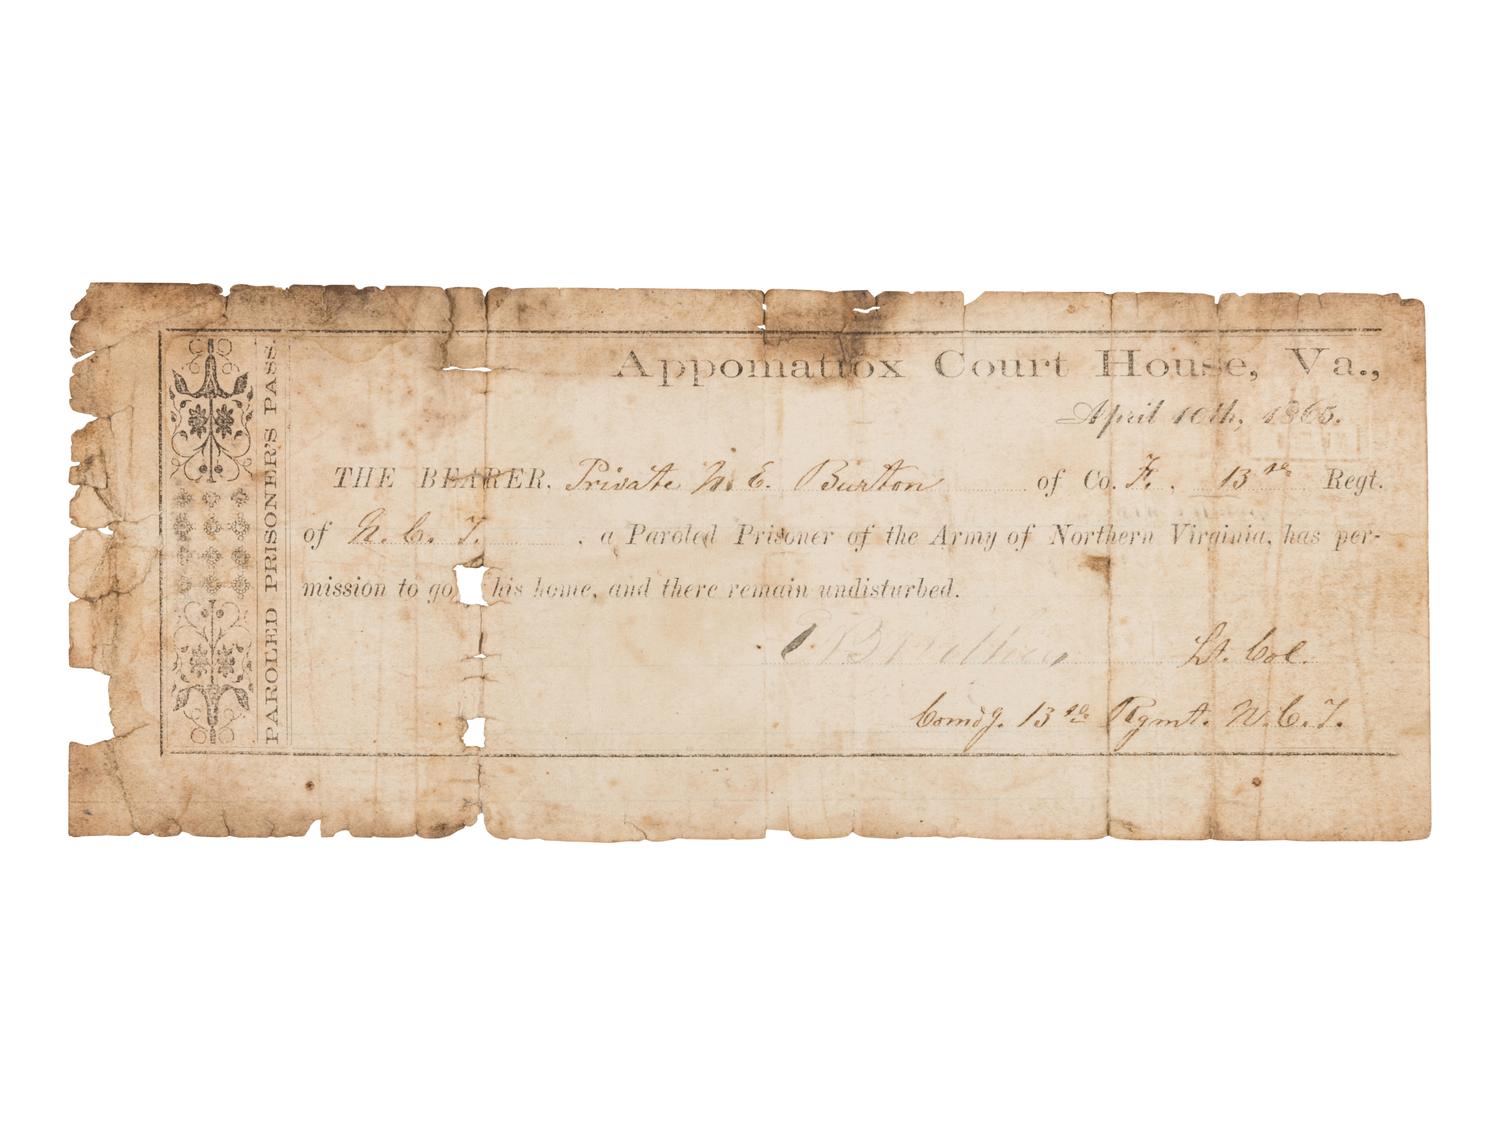 PAROLED PRISONER'S PASS.
Appomattox Court House, Va.,
April 10th, 1865.
THE BEARER, Private M. E. Burton of Co. F., 13th Regt.
of N. C. T. , a Paroled Prisoner of the Army of Northern Virginia, has per-
mission to go his home, and there remain undisturbed.
E B Withers Lt. Col.
Comdg. 13th Rgmt. N. C. T.